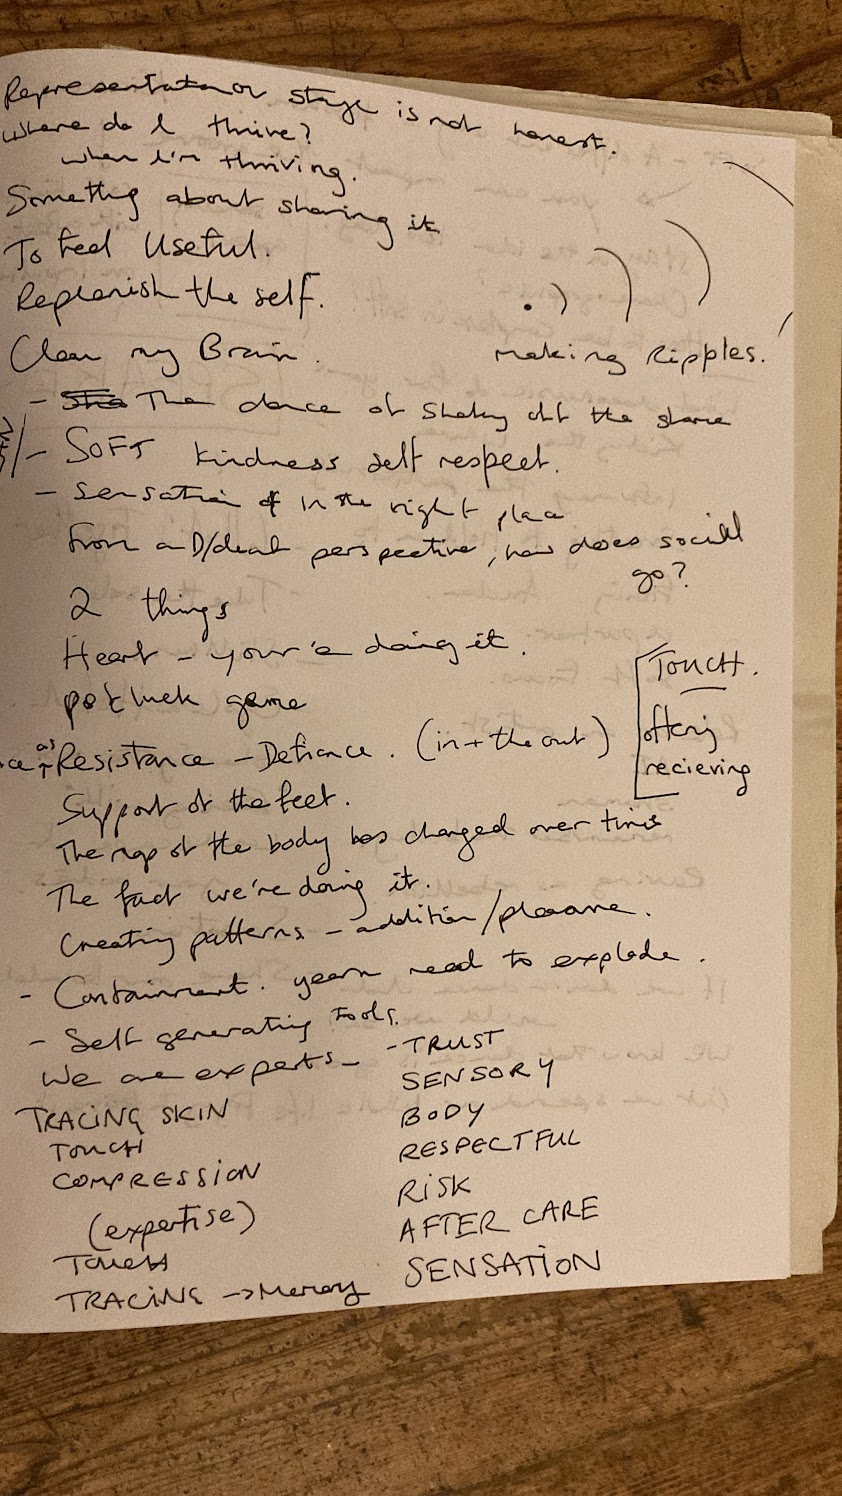 Representation on stage is not honest.
Where do I thrive?
when I'm thriving.
Something about sharing it
To feel Useful.
Replenish the self.
Clean my Brain.
making Ripples.
- The dance of shaking off the shame
- SOFT kindness self respect.
- Sensation of in the right place
From a D/deaf perspective, how does social
go?
2 things
Heart - your'e doing it.
potluck game
TOUCH.
offering
recieving
as Resistance - Defiance. (in + the out)
Support of the feet.
The map of the body has changed over time
The fact we're doing it.
Creating patterns - addition/pleasure.
- Containment. yearn need to explode.
- Self generating Tools.
We are experts -
TRACING SKIN
TOUCH
COMPRESSION
(expertise)
Touch
TRACING -> Memory
- TRUST
SENSORY
BODY
RESPECTFUL
RISK
AFTER CARE
SENSATION